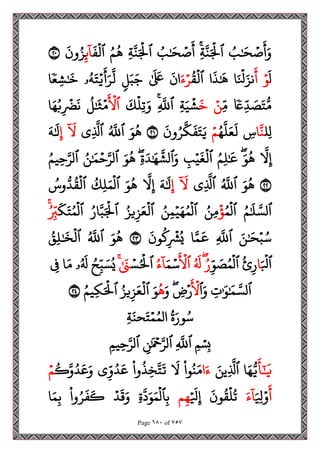 وَأَصْحَٰبُ ٱلْجَنَّةِ ۚ أَصْحَٰبُ ٱلْجَنَّةِ هُمُ ٱلْفَآئِزُونَ ٢٠
لَوْ أَنزَلْنَا هَٰذَا ٱلْقُرْءَانَ عَلَىٰ جَبَلٍ لَّرَأَيْتَهُۥ خَٰشِعًا
مُّتَصَدِّعًا مِّنْ خَشْيَةِ ٱللَّهِ ۚ وَتِلْكَ ٱلْأَمْثَٰلُ نَضْرِبُهَا
لِلنَّاسِ لَعَلَّهُمْ يَتَفَكَّرُونَ ٢١ هُوَ ٱللَّهُ ٱلَّذِى لَآ إِلَٰهَ
إِلَّا هُوَ ۖ عَٰلِمُ ٱلْغَيْبِ وَٱلشَّهَٰدَةِ ۖ هُوَ ٱلرَّحْمَٰنُ ٱلرَّحِيمُ
٢٢ هُوَ ٱللَّهُ ٱلَّذِى لَآ إِلَٰهَ إِلَّا هُوَ ٱلْمَلِكُ ٱلْقُدُّوسُ
ٱلسَّلَٰمُ ٱلْمُؤْمِنُ ٱلْمُهَيْمِنُ ٱلْعَزِيزُ ٱلْجَبَّارُ ٱلْمُتَكَبِّرُ ۚ
سُبْحَٰنَ ٱللَّهِ عَمَّا يُشْرِكُونَ ٢٣ هُوَ ٱللَّهُ ٱلْخَٰلِقُ
ٱلْبَارِئُ ٱلْمُصَوِّرُ ۖ لَهُ ٱلْأَسْمَآءُ ٱلْحُسْنَىٰ ۚ يُسَبِّحُ لَهُۥ مَا فِى
ٱلسَّمَٰوَٰتِ وَٱلْأَرْضِ ۖ وَهُوَ ٱلْعَزِيزُ ٱلْحَكِيمُ ٢٤
سُورَةُ المُمتَحنَةِ
بِسْمِ ٱللَّهِ ٱلرَّحْمَٰنِ ٱلرَّحِيمِ
يَٰٓأَيُّهَا ٱلَّذِينَ ءَامَنُوا۟ لَا تَتَّخِذُوا۟ عَدُوِّى وَعَدُوَّكُمْ
أَوْلِيَآءَ تُلْقُونَ إِلَيْهِم بِٱلْمَوَدَّةِ وَقَدْ كَفَرُوا۟ بِمَا
Page ٦٨٠ of ٧٥٧